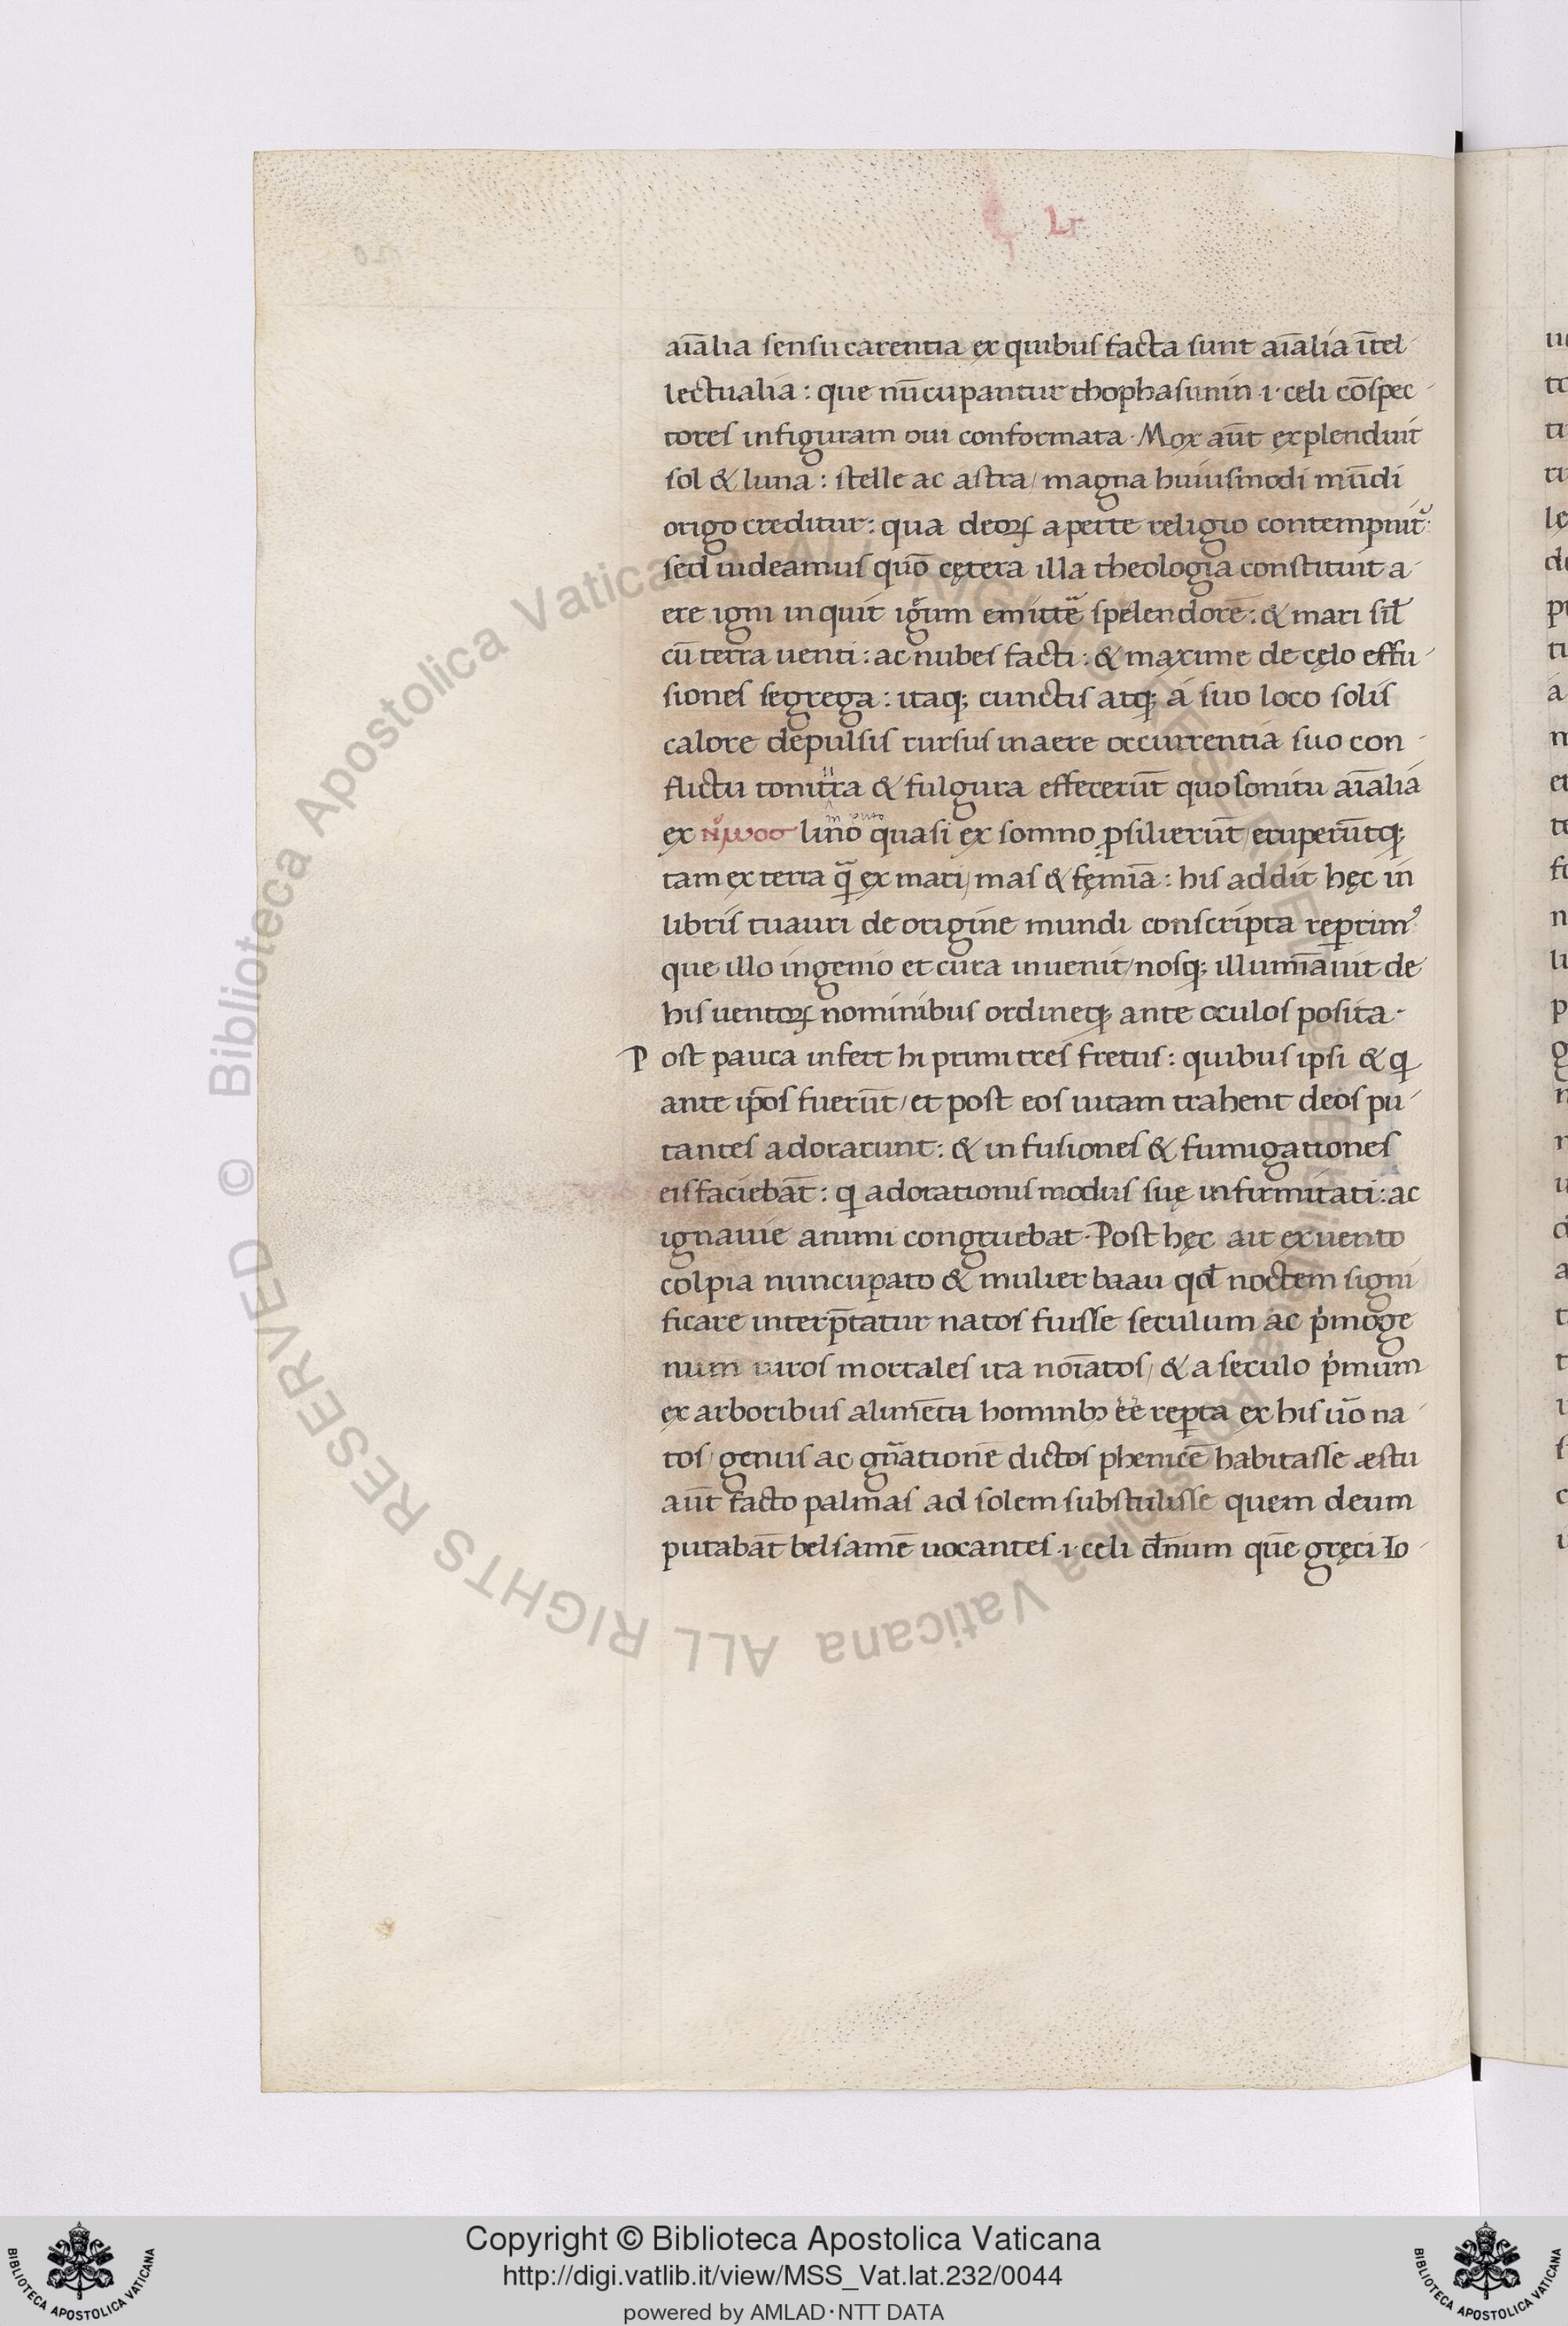 Lr
aīalia sensu carentia ex quibus facta sunt aīalia ītel
lectualia: que nūcupantur thophasunin .i. celi cōspec
tores in figuram oui conformata. Mox aūt explenduit
sol & luna: stelle ac astra/ magna huiusmodi mūdi
origo creditur: qua deoꝝ aperte religio contempnit᷑:
sed uideamus quō cętera illa theologia constituit a
ere igni inquit igͣum emittē spelendorē: & mari sil̄
cū terra uenti: ac nubes facti: & maxime de cęlo effu
siones segrega: itaqꝫ cunctis atqꝫ á suo loco solis
calore depulsis rursus in aere occurrentia suo con
flictu tonitra & fulgura effecerūt quo sonitu aīalia
ex lino quasi ex somno ꝓsilierūt/ eruperūtqꝫ
tam ex terra q̄ ex mari/ mas & fęmīa: his addit hęc in
libris tuauri de origine mundi conscripta reꝑtimꝰ
que illo ingenio et cura inuenit/ nosqꝫ illumīauit de
his uentoꝝ nominibus ordineqꝫ ante oculos posita.
Post pauca infert hi primi tres fretus: quibus ipsi & qͥ
ante ip̄os fuerūt/ et post eos uitam trahent deos pu
tantes adorarunt: & infusiones & fumigationes
eis faciebāt: qͥ adorationis modus suę infirmitati: ac
ignauie animi congruebat. Post hęc ait ex uento
colpia nuncupato & mulier baau qd̄ noctem signi
ficare interp̄tatur natos fuisse seculum ac pͥmoge
num uiros mortales ita noīatos/ & a seculo pͥmum
ex arboribus alimētu hominibꝫ eē reꝑta ex his uō na
tos/ genus ac gn̄ationē dictos phenicē habitasse æstu
aūt facto palmas ad solem substulisse quem deum
putabāt belsamē uocantes .i. celi dn̄um quē gręci Io
Copyright © Biblioteca Apostolica Vaticana
http://digi.vatlib.it/view/MSS_Vat.lat.232/0044
powered by AMLAD·NTT DATA